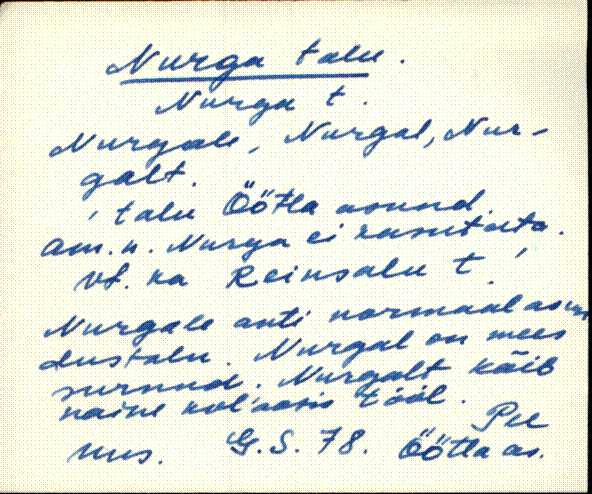 Nurga talu.
Nurga t.
Nurgale, Nurgal, Nur-
galt.
, talu Öötla asund.
Am. n. Nurga ei kasutata.
Vt. ka Reinsalu t.
Nurgale anti normaal asun
dustalu. Nurgal on mees
surnud. Nurgalt käib
naine kol'oosis tööl.
Pee
Mus. G. S. 78. Öötla as.